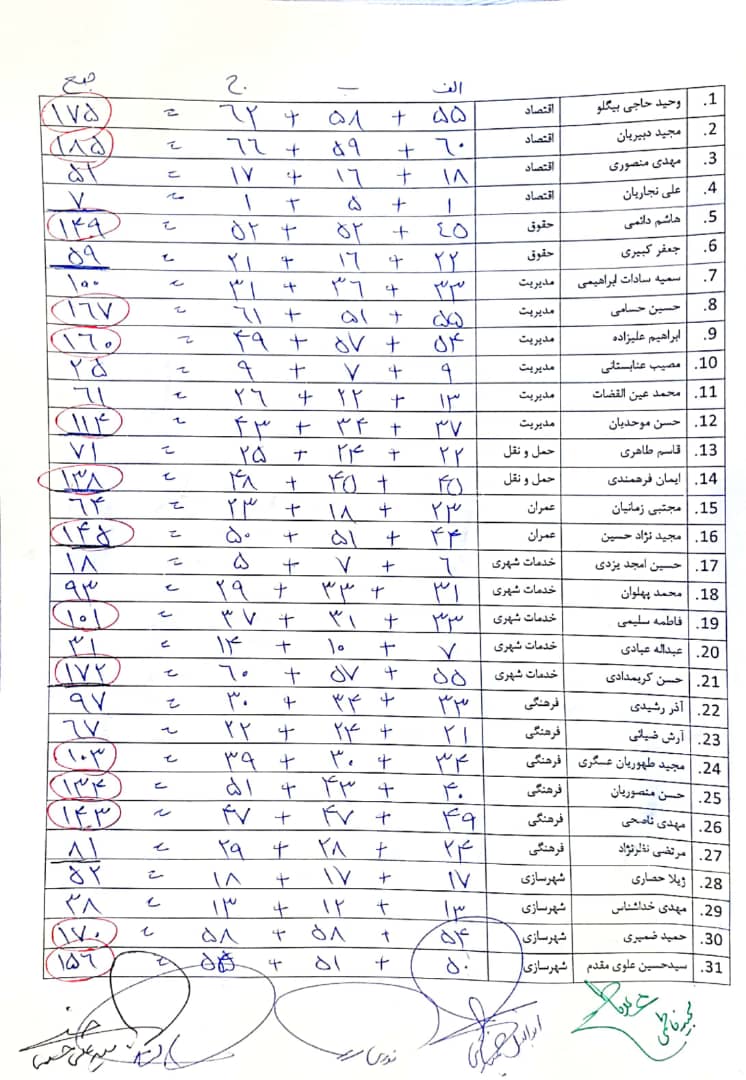 الف ب ج جمع
1. وحید حاجی بیگلو اقتصاد ۵۵ + ۵۸ + ۶۲ = ۱۷۵
2. مجید دبیریان اقتصاد ۶۰ + ۵۹ + ۶۶ = ۱۸۵
3. مهدی منصوری اقتصاد ۱۸ + ۱۶ + ۱۷ = ۵۱
4. علی نجاریان اقتصاد ۱ + ۵ + ۱ = ۷
5. هاشم دائمی حقوق ۴۵ + ۵۲ + ۵۲ = ۱۴۹
6. جعفر کبیری حقوق ۲۲ + ۱۶ + ۲۱ = ۵۹
7. سمیه سادات ابراهیمی مدیریت ۳۳ + ۳۶ + ۳۱ = ۱۰۰
8. حسین حسامی مدیریت ۵۵ + ۵۱ + ۶۱ = ۱۶۷
9. ابراهیم علیزاده مدیریت ۵۴ + ۵۷ + ۴۹ = ۱۶۰
10. مصیب عنابستانی مدیریت ۹ + ۷ + ۹ = ۲۵
11. محمد عین القضات مدیریت ۱۳ + ۲۲ + ۲۶ = ۶۱
12. حسن موحدیان مدیریت ۳۷ + ۳۴ + ۴۳ = ۱۱۴
13. قاسم طاهری حمل و نقل ۲۲ + ۲۴ + ۲۵ = ۷۱
14. ایمان فرهمندی حمل و نقل ۴۵ + ۴۵ + ۴۸ = ۱۳۸
15. مجتبی زمانیان عمران ۲۳ + ۱۸ + ۲۳ = ۶۴
16. مجید نژاد حسین عمران ۴۴ + ۵۱ + ۵۰ = ۱۴۵
17. حسین امجد یزدی خدمات شهری ۶ + ۷ + ۵ = ۱۸
18. محمد پهلوان خدمات شهری ۳۱ + ۳۳ + ۲۹ = ۹۳
19. فاطمه سلیمی خدمات شهری ۳۳ + ۳۱ + ۳۷ = ۱۰۱
20. عبداله عبادی خدمات شهری ۷ + ۱۰ + ۱۴ = ۳۱
21. حسن کریمدادی خدمات شهری ۵۵ + ۵۷ + ۶۰ = ۱۷۲
22. آذر رشیدی فرهنگی ۳۳ + ۳۴ + ۳۰ = ۹۷
23. آرش ضیائی فرهنگی ۲۱ + ۲۴ + ۲۲ = ۶۷
24. مجید طهوریان عسگری فرهنگی ۳۴ + ۳۰ + ۳۹ = ۱۰۳
25. حسن منصوریان فرهنگی ۴۰ + ۴۳ + ۵۱ = ۱۳۴
26. مهدی ناصحی فرهنگی ۴۹ + ۴۷ + ۴۷ = ۱۴۳
27. مرتضی نظرنژاد فرهنگی ۲۴ + ۲۸ + ۲۹ = ۸۱
28. ژیلا حصاری شهرسازی ۱۷ + ۱۷ + ۱۸ = ۵۲
29. مهدی خداشناس شهرسازی ۱۳ + ۱۲ + ۱۳ = ۳۸
30. حمید ضمیری شهرسازی ۵۴ + ۵۸ + ۵۸ = ۱۷۰
31. سیدحسین علوی مقدم شهرسازی ۵۰ + ۵۱ + ۵۵ = ۱۵۶